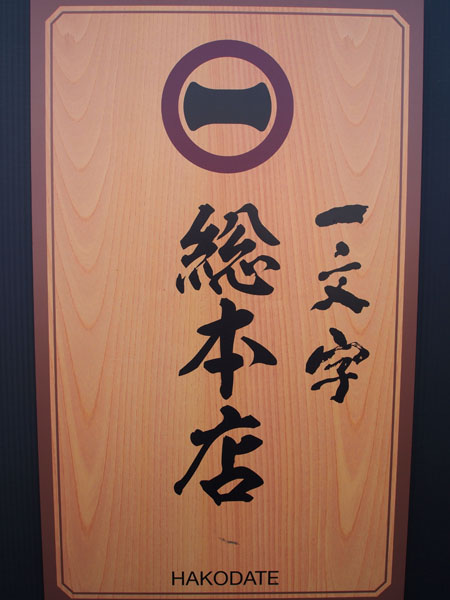 一文字
総本店
HAKODATE